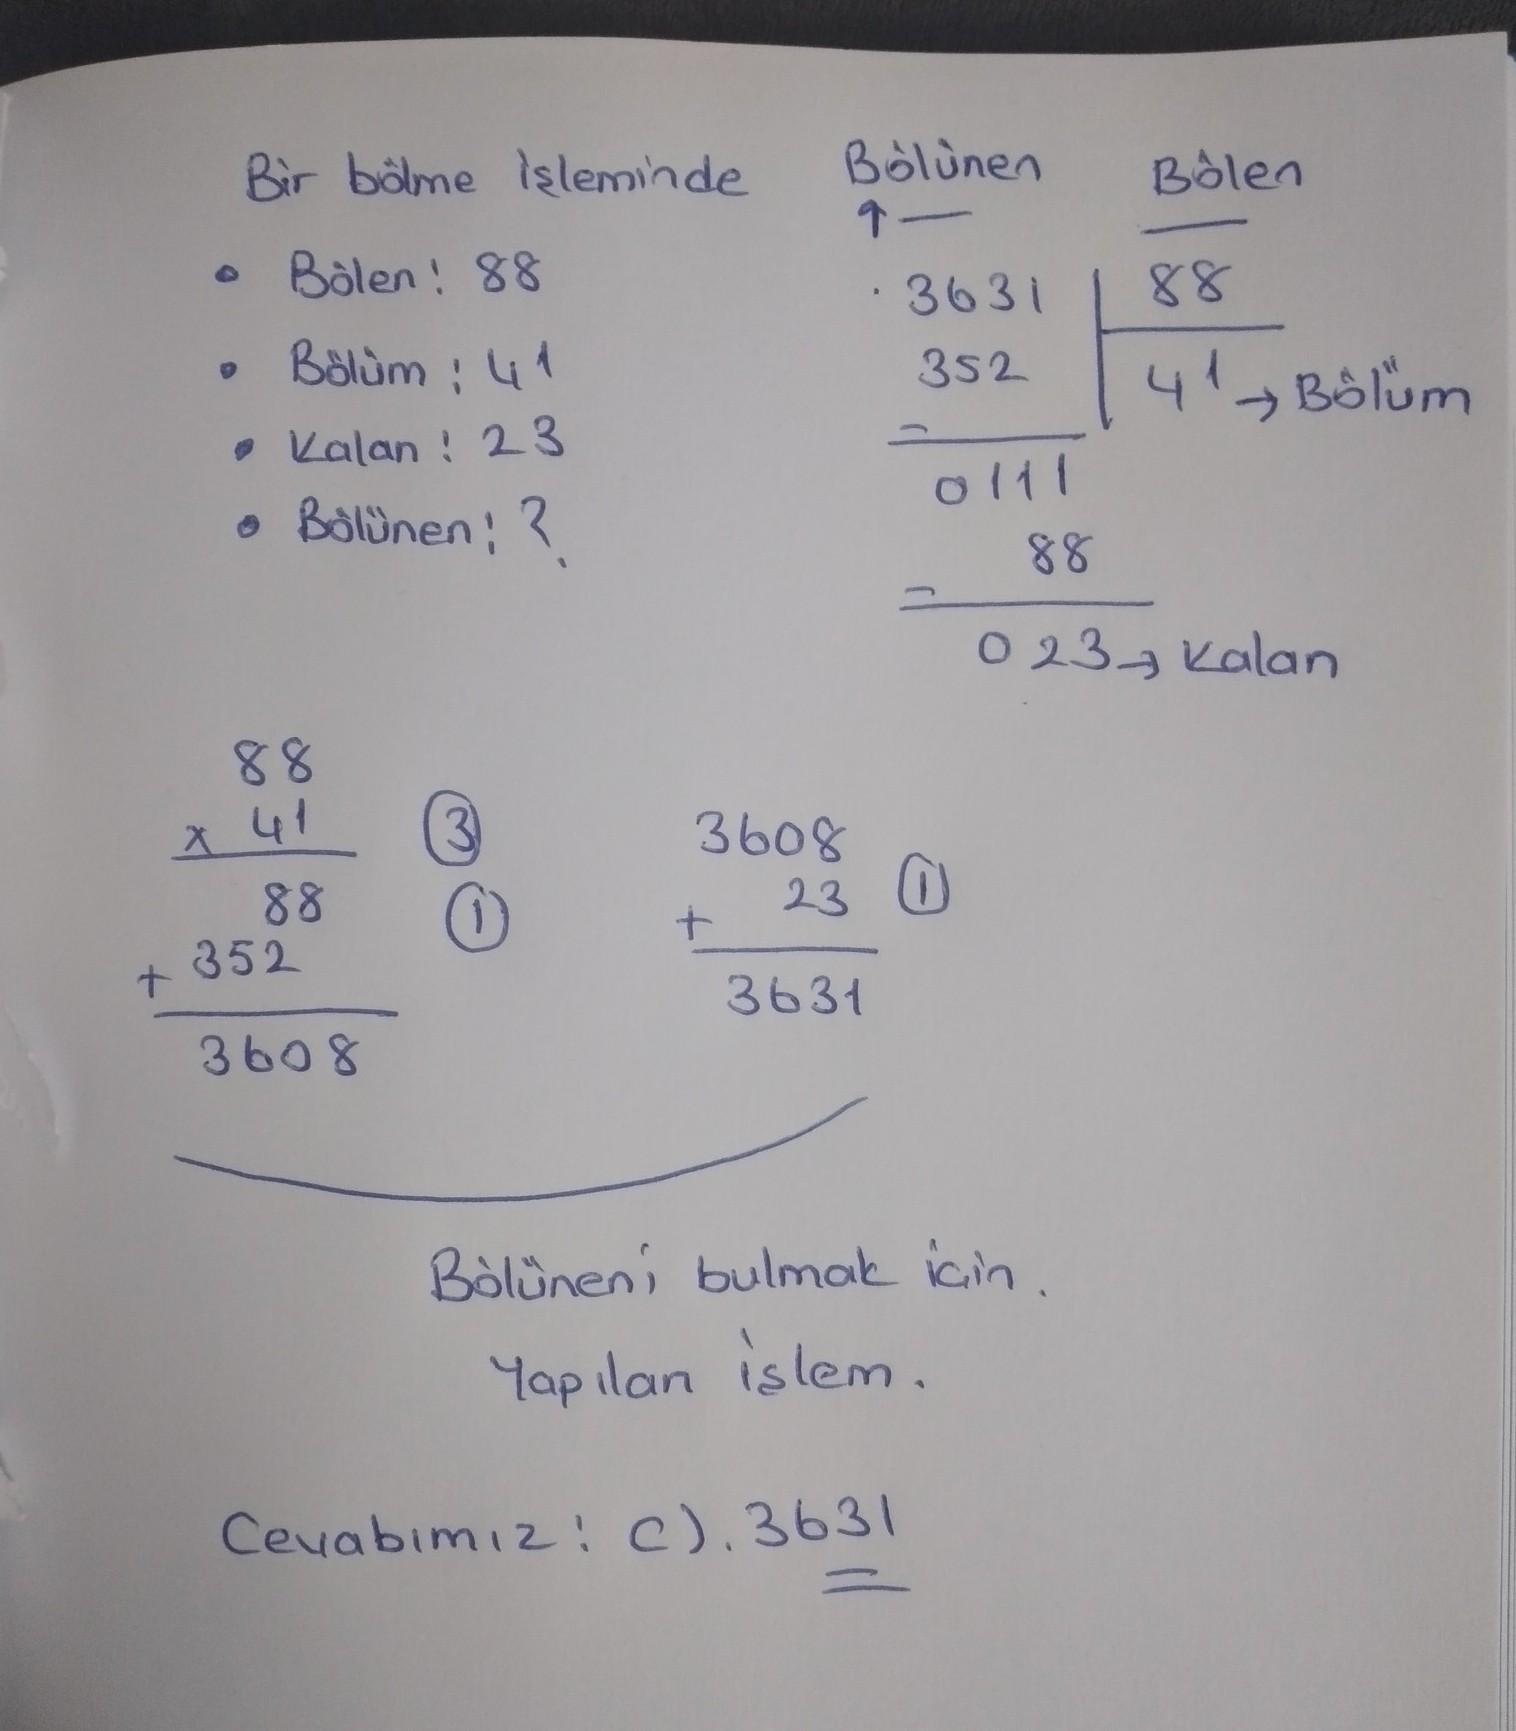 Bir bölme işleminde
• Bölen: 88
• Bölüm: 41
• Kalan: 23
• Bölünen: ?
Bölünen Bölen
↑ —
3631 88
352 41 → Bölüm
-
0111
88
-
023 → Kalan
88
x 41 ③
88 ①
+ 352
3608
3608
+ 23 ①
3631
Bölüneni bulmak için.
Yapılan işlem.
Cevabımız: C). 3631